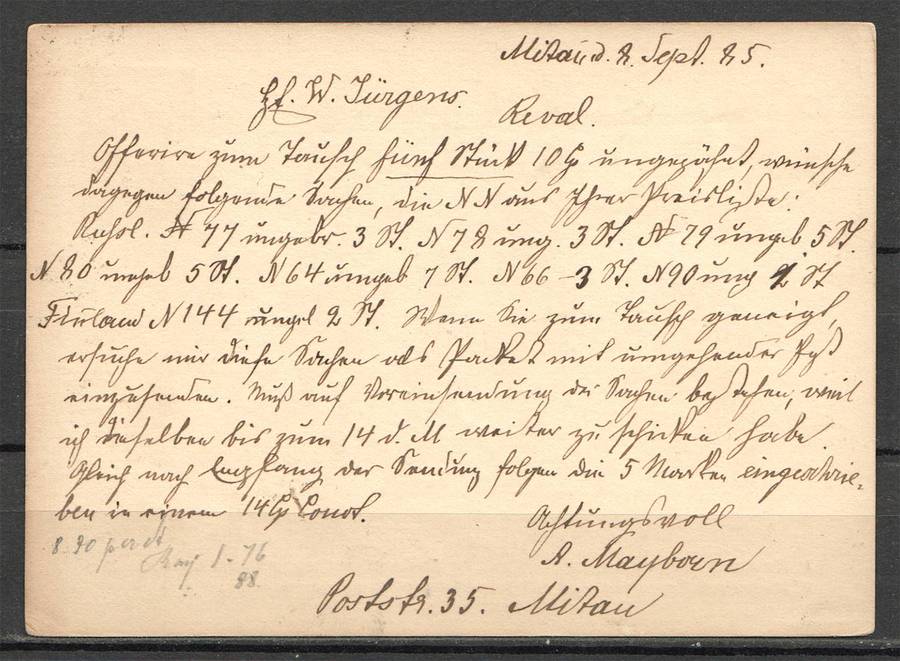 Mitau d. 8. Sept. 85.
H. W. Jürgens.
Reval.
Offerire zum Tausch fünf Stück 10 Kp ungezähnt, wünsche
dagegen folgende Sachen, die NN aus Ihrer Preisliste:
Russl. N 77 ungebr. 3 St. N 78 ung. 3 St. N 79 ungeb 5 St.
N 80 ungeb 5 St. N 64 ungeb 7 St. N 66 – 3 St. N 90 ung 2 St
Finland N 144 ungeb 2 St. Wenn Sie zum Tausch geneigt,
ersuche mir diese Sachen als Packet mit umgehender Post
einzusenden. Muß auf Voreinsendung der Sachen bestehen, weil
ich dieselben bis zum 14 d. M weiter zu schicken habe.
Gleich nach Empfang der Sendung folgen die 5 Marken eingeschrie-
ben in einem 14 Kp Couvt.
Achtungsvoll
A. Mayborn
Poststr. 35. Mitau
8. 90
1 - 76
88